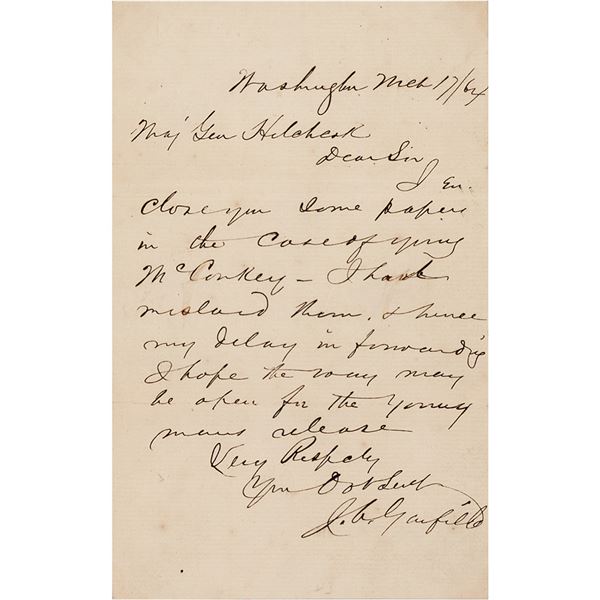 Washington Mch 17/64
Maj Gen Hitchcock
Dear Sir
I En-
close you some papers
in the case of young
McConkey – I had
mislaid them, & hence
my delay in forwarding
I hope the way may
be open for the young
mans release
Very Respcty
Your Obt Servt
J. A. Garfield